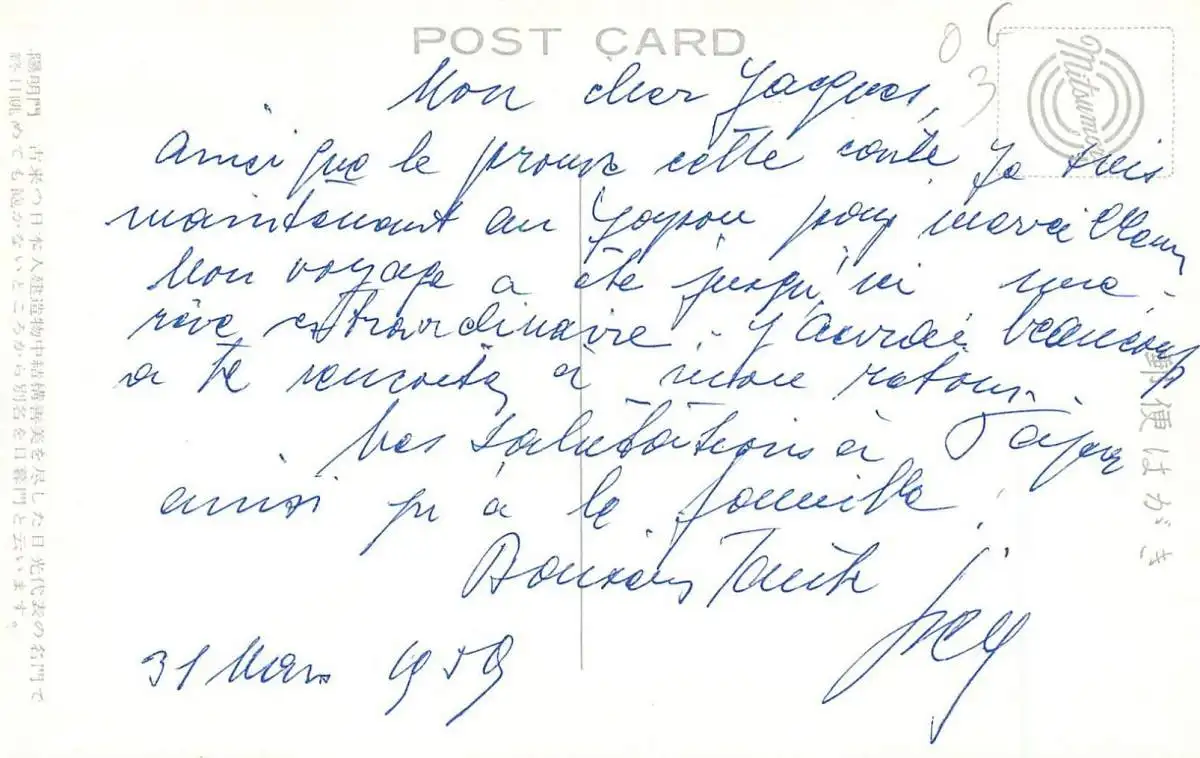 POST CARD
Mitumura
03
Mon cher Jacques,
Ainsi que le prouve cette carte Je suis
maintenant au Japon pays merveilleux
Mon voyage a été jusqu'ici une
rêve extraordinaire. J'aurai beaucoup
a te raconter à mon retour.
Mes salutations à
ainsi qu'à la famille.
31 Mars 1959
郵便はがき
陽明門 由来つ日本人建造物中結構善美を尽した日光代表の名門で
終日眺めても飽かないところから別名を日暮門と云います。